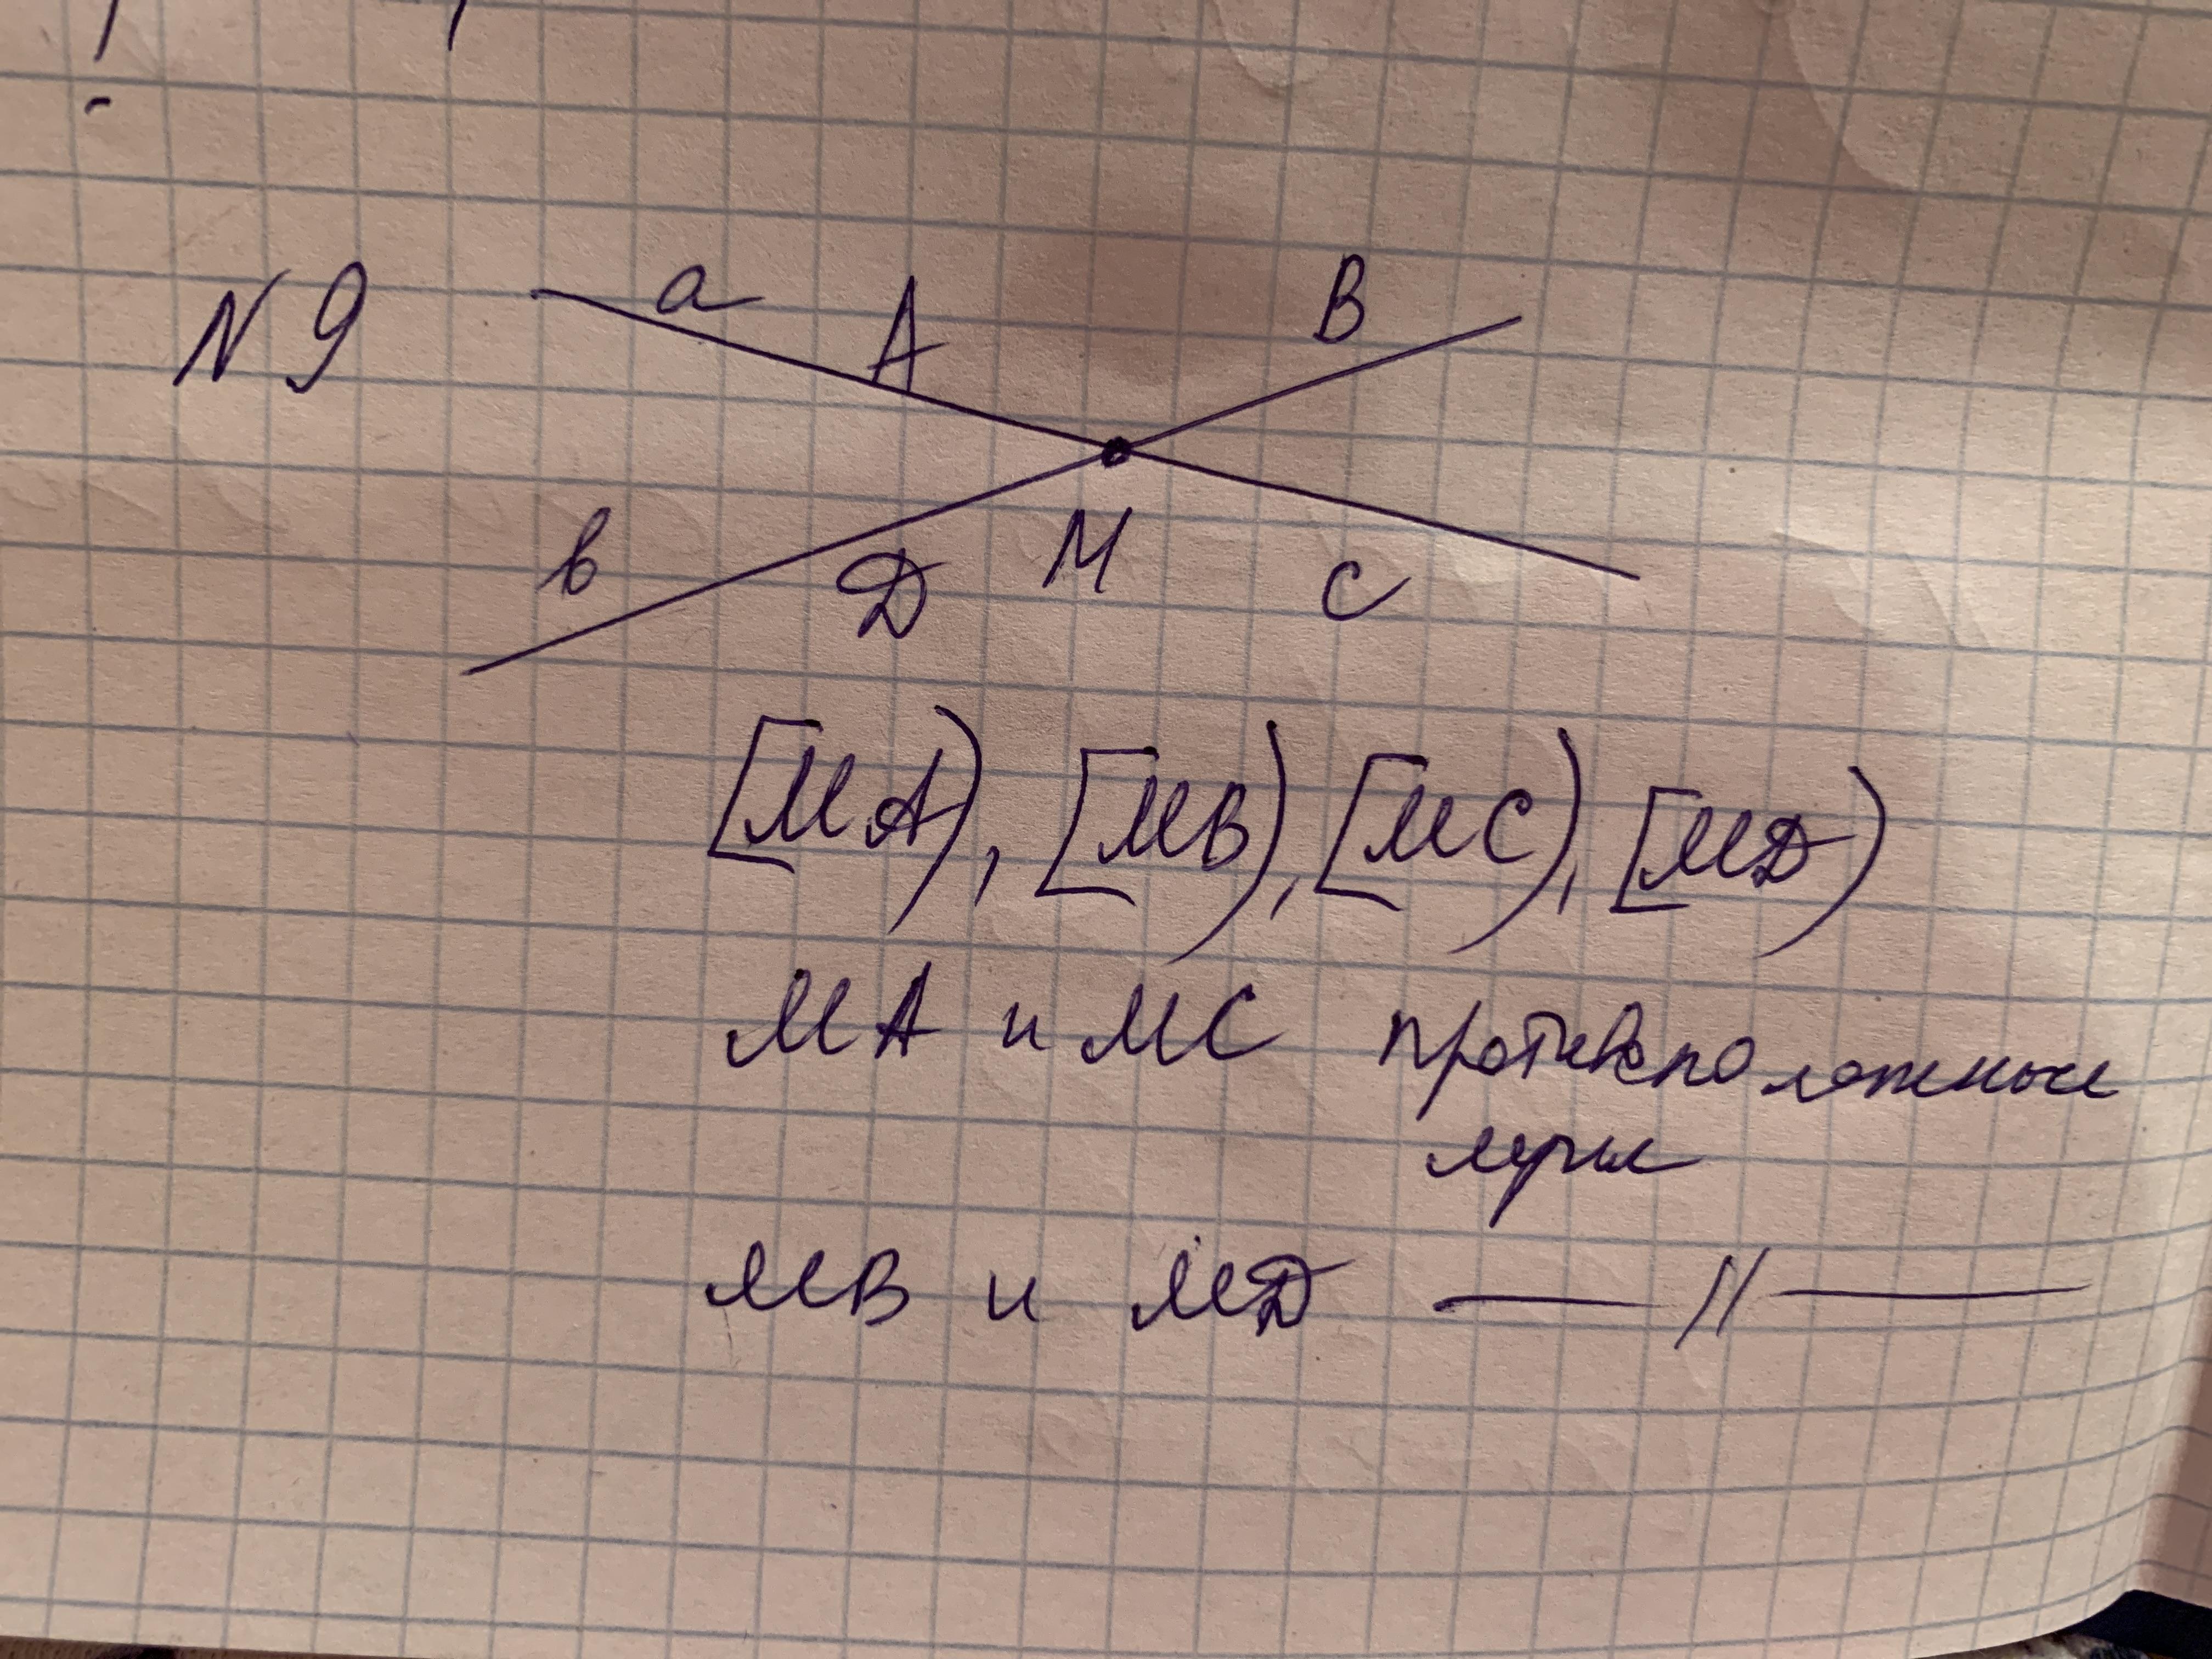 N 9
a A B
в Д M C
[MA), [MB), [MC), [MД)
MA и MC противоположные
лучи
MB и MД —— // ——